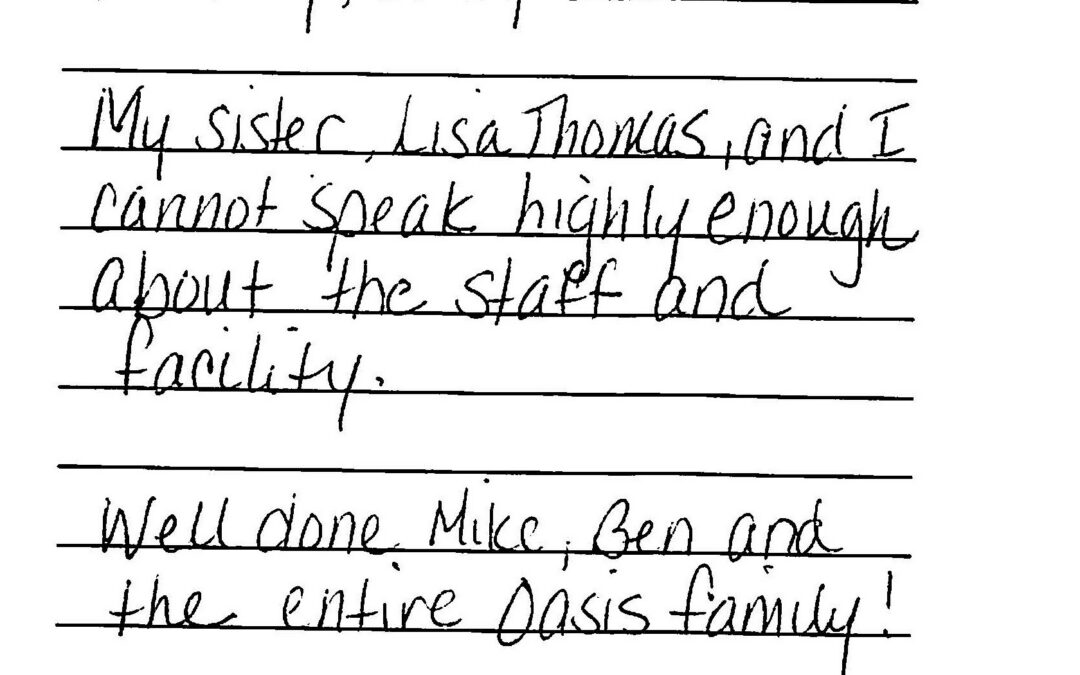 My sister, Lisa Thomas, and I
cannot speak highly enough
about the staff and
facility.
Well done Mike, Ben and
the entire Oasis family!